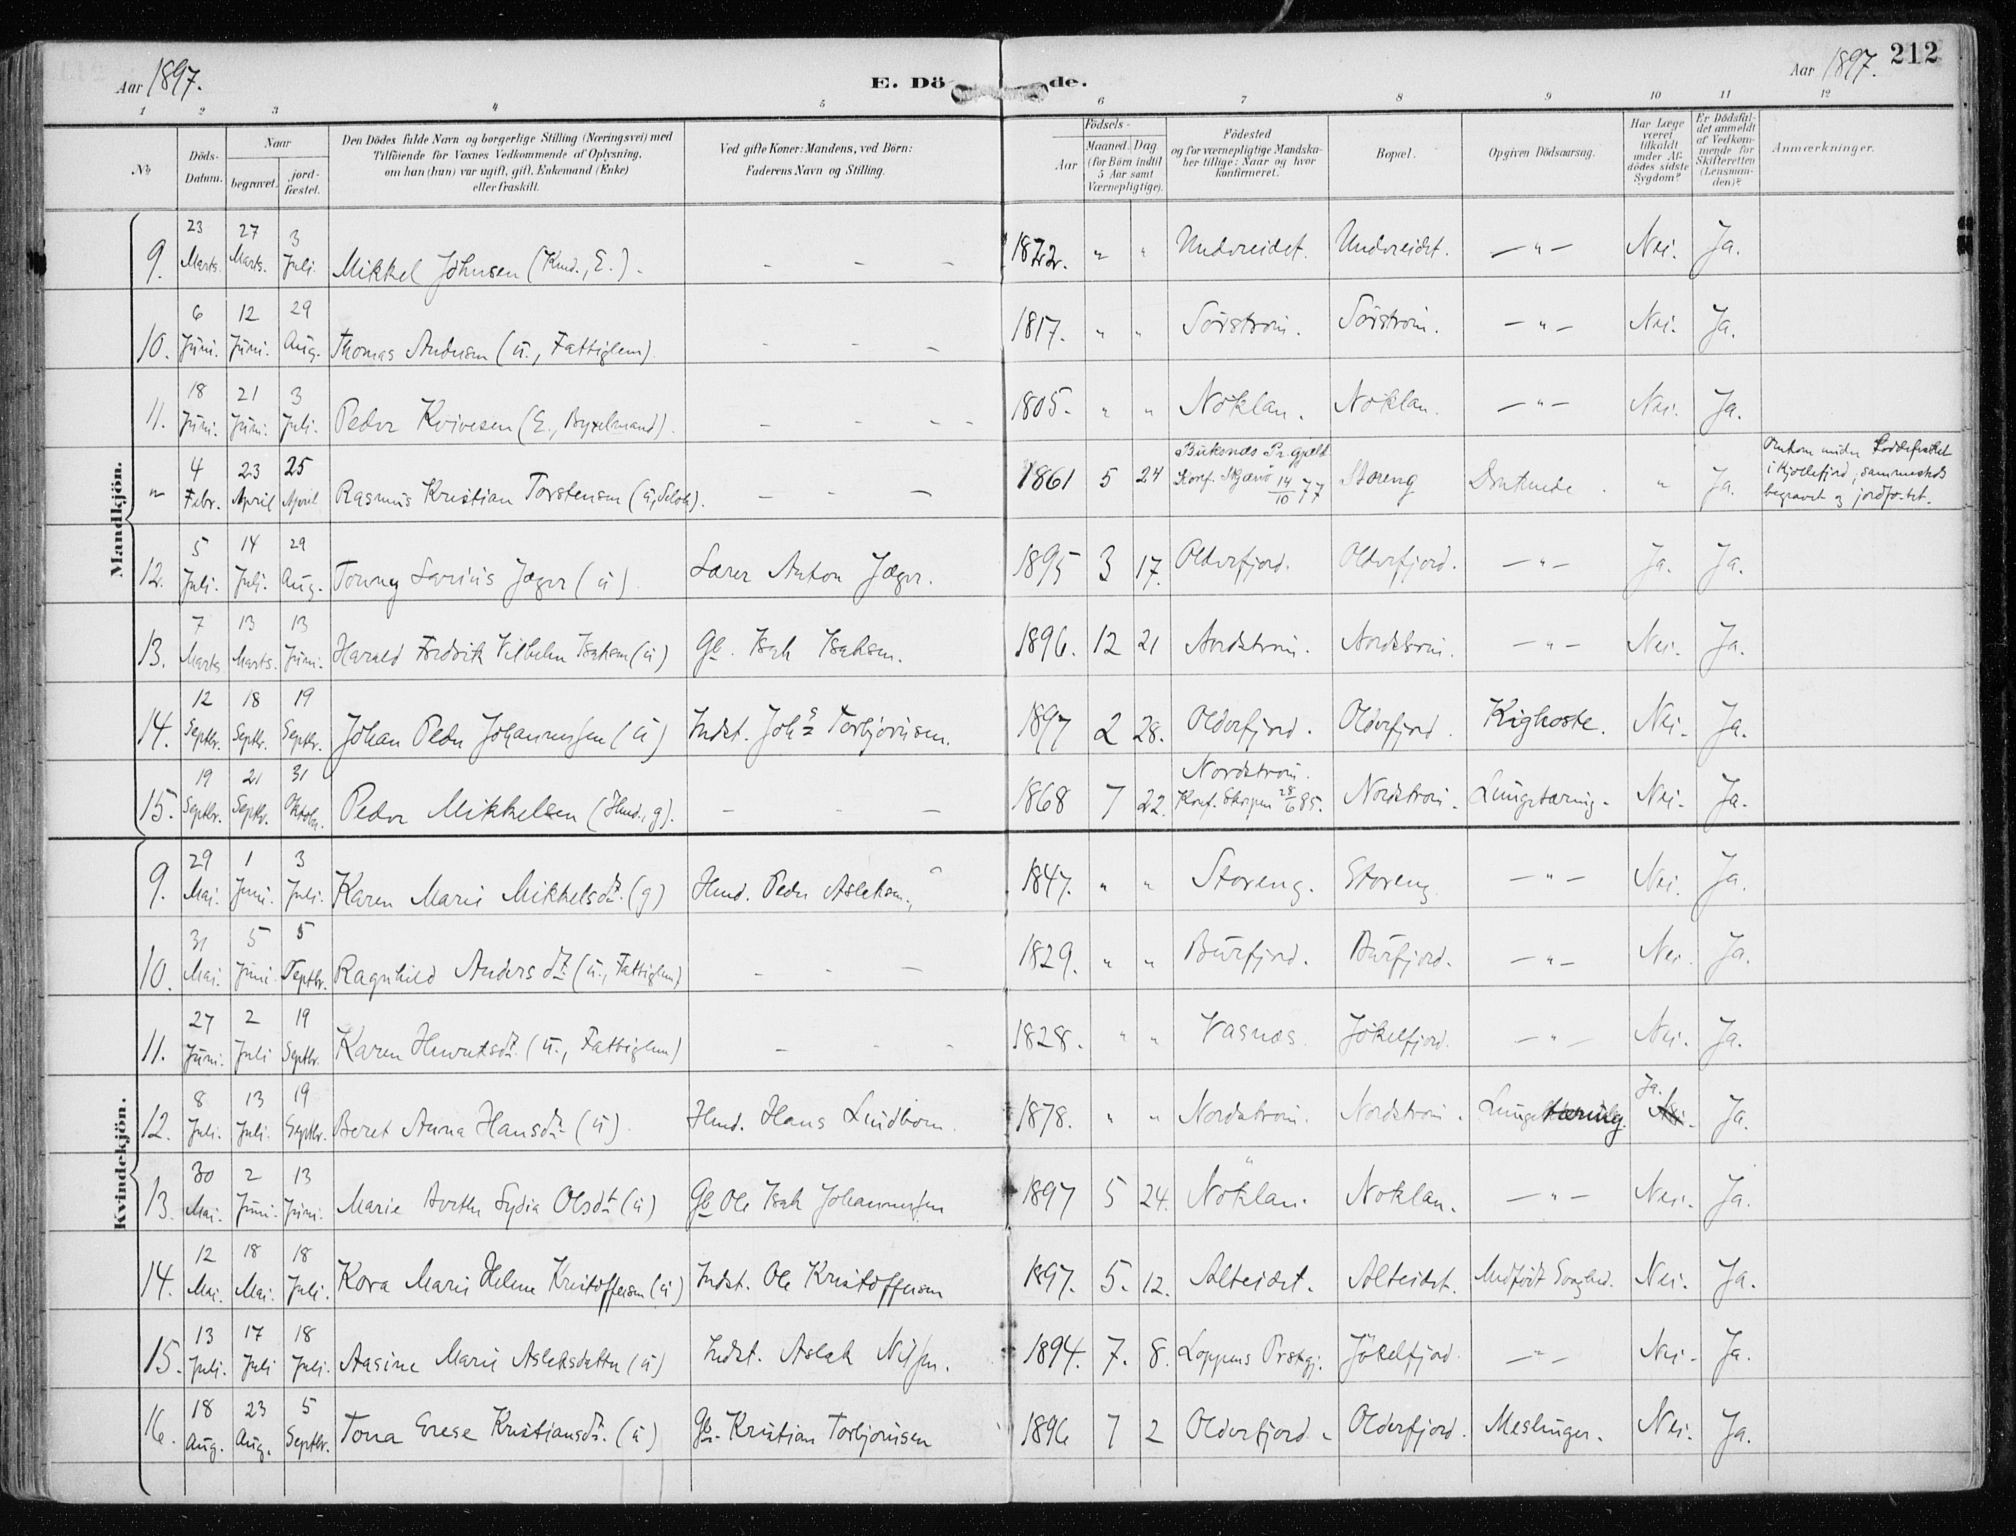 Aar 1897.
E. Döde.
Aar 1897. 212
1 2 3 4 5 6 7 8 9 10 11 12
No
Döds-Datum.
Naar
begravet.
jord-fæstet.
Den Dödes fulde Navn og borgerlige Stilling (Næringsvei) med
Tilföiende for Voxnes Vedkommende af Oplysning,
om han (hun) var ugift, gift, Enkemand (Enke)
eller fraskilt.
Ved gifte Koner: Mandens, ved Börn:
Faderens Navn og Stilling.
Födsels-
Aar
Maaned.
Dag
(for Børn indtil
5 Aar samt
Værnepligtige).
Födested
og for værnepligtige Mandska-
ber tillige: Naar og hvor
konfirmeret.
Bopæl.
Opgiven Dödsaarsag.
Har Læge
været
tilkaldt
under Af-
dödes sidste
Sygdom?
Er Dödsfal-
det anmeldt
af Vedkom-
mende for
Skifteretten
(Lensman-
den)?
Anmærkninger.
Mandkjön.
9. 23 Marts. 27 Marts. 3 Juli. Mikkel Johnsen ( E.). - - - 18 " " Undereidet. Undereidet. — " — Nei. Ja.
10. 6 Juni. 12 Juni. 29 Aug. Thomas Andersen (u., Fattiglem). - - - 1817. " " Sörstrøm. Sörstrøm. — " — Nei. Ja.
11. 18 Juni. 21 Juni. 3 Juli. Peder Kvivesen (E., Bygselmand). - - - 1805. " " Noklan. Noklan. — " — Nei. Ja.
" 4 Febr. 23 April 25 April Rasmus Kristian Torstensen (u, Selvb.). - - - 1861 5 24 Buksnæs Pr.gjæld Konf. Skjærvö 14/10 77 Storeng Druknede. " Ja. Omkom under Loddefisket
i Kjöllefjord; sammesteds
begravet og jordfæstet.
12. 5 Juli. 14 Juli. 29 Aug. Tonny Jæger (u) Lærer Anton Jæger. 1895 3 17. Olderfjord. Olderfjord. — " — Ja. Ja.
13. 7 Marts 13 Marts. 13 Juni. Harald Fredrik Vilhelm Isaksen (u) Gb. Isak Isaksen. 1896. 12 21 Nordstrøm. Nordstrøm. — " — Nei. Ja.
14. 12 Septbr. 18 Septbr. 19 Septbr. Johan Peder Johannessen (u) Indst. Johs Torbjörnsen. 1897 2 28. Olderfjord. Olderfjord. Kighoste. Nei. Ja.
15. 19 Septbr. 21 Septbr. 31 Oktober. Peder Mikkelsen (Husm., g). - - - 1868 7 22. Nordstrøm. Konf. 28/6 85. Nordstrøm. Lungetæring. Nei. Ja.
Kvindekjön.
9. 29 Mai. 1 Juni. 3 Juli. Karen Marie Mikkelsdt. (g) Husm. Peder Aslaksen. 1847. " " Storeng. Storeng. — " — Nei. Ja.
10. 31 Mai. 5 Juni. 5 Septbr. Ragnhild Andersdt. (u., Fattiglem) - - - 1829. " " Burfjord. Burfjord. — " — Nei. Ja.
11. 27 Juni. 2 Juli 19 Septbr. Karen Henriksdt. (u., Fattiglem) - - - 1828. " " Vasnæs. Jökelfjord. — " — Nei. Ja.
12. 8 Juli. 13 Juli. 19 Septbr. Beret Anna Hansdt. (u) Husm. Hans Lindbom. 1878. " " Nordstrøm. Nordstrøm. Lungetæring. Ja. Nei. Ja.
13. 30 Mai. 2 Juni. 13 Juni. Marie Lydia Olsdt. (u) Gb Ole Isak Johannessen 1897 5 24. Noklan. Noklan. — " — Nei. Ja.
14. 12 Mai. 18 Mai. 18 Juli. Kora Marie Helene Kristoffersen (u) Indst. Ole Kristoffersen 1897. 5. 12. Alteidet. Alteidet. Medfödt Nei. Ja.
15. 13 Juli. 17 Juli 18 Juli. Aasine Marie Aslaksdatter (u) Indst. Aslak Nilsen. 1894. 7. 8. Loppens Prstgj. Jökelfjord. — " — Nei. Ja.
16. 18 Aug. 23 Aug. 5 Septbr. Tona Kristiansdt. (u) Gb. Kristian Torbjörnsen 1896 7 2 Olderfjord. Olderfjord. Meslinger. Nei. Ja.